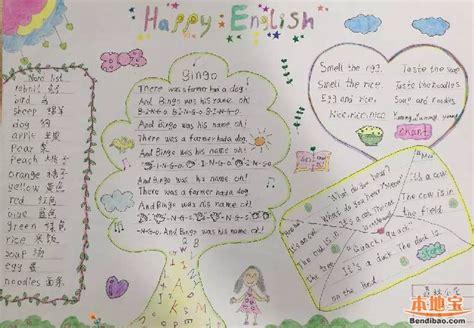 Happy English
Word list
rabbit 兔
bird 鸟
sheep 绵羊
dog 狗
apple 苹果
pear 梨
peach 桃子
orange 橘子
yellow 黄色
red 红色
blue 蓝色
green 绿色
rice 米饭
soup 汤
egg
noodles 面条
Bingo
There was a farmer had a dog!
And Bingo was his name oh!
B-I-N-G-O
And Bingo was his name oh!
There was a farmer had a dog!
And Bingo was his name oh!
I-N-G-O
And Bingo was his name oh!
There was a farmer had a dog.
And Bingo was his name oh!
N-G-O
And Bingo was his name oh!
Smell the egg. Taste the soup
Smell the rice. Taste the noodles
Egg and rice, Soup and noodles
Nice, nice, nice. Yummy, yummy, yummy
chant
What do you hear?
Moo
What do you hear?
It's a cow.
The cow is in
the field.
Quack, quack.
It's a duck. The duck is
on the
本地宝
Bendibao.com